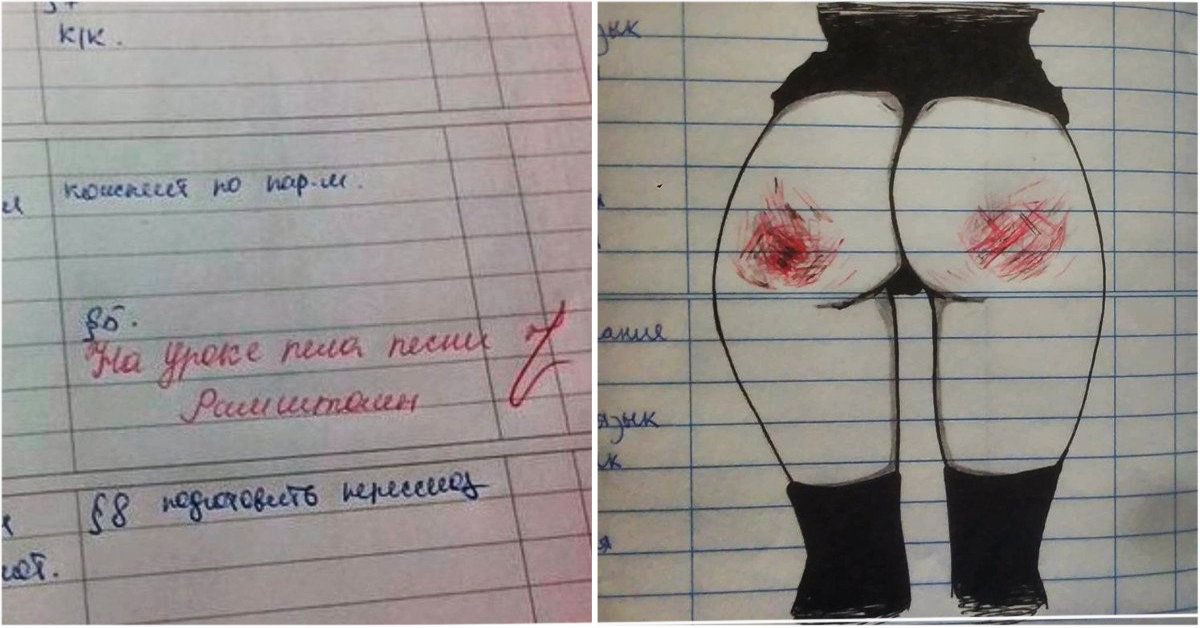 к/к.
конспект по пар-м.
§5.
На уроке пела песни
Рамштайн
§8 подготовить пересказ
ык
ания
язык